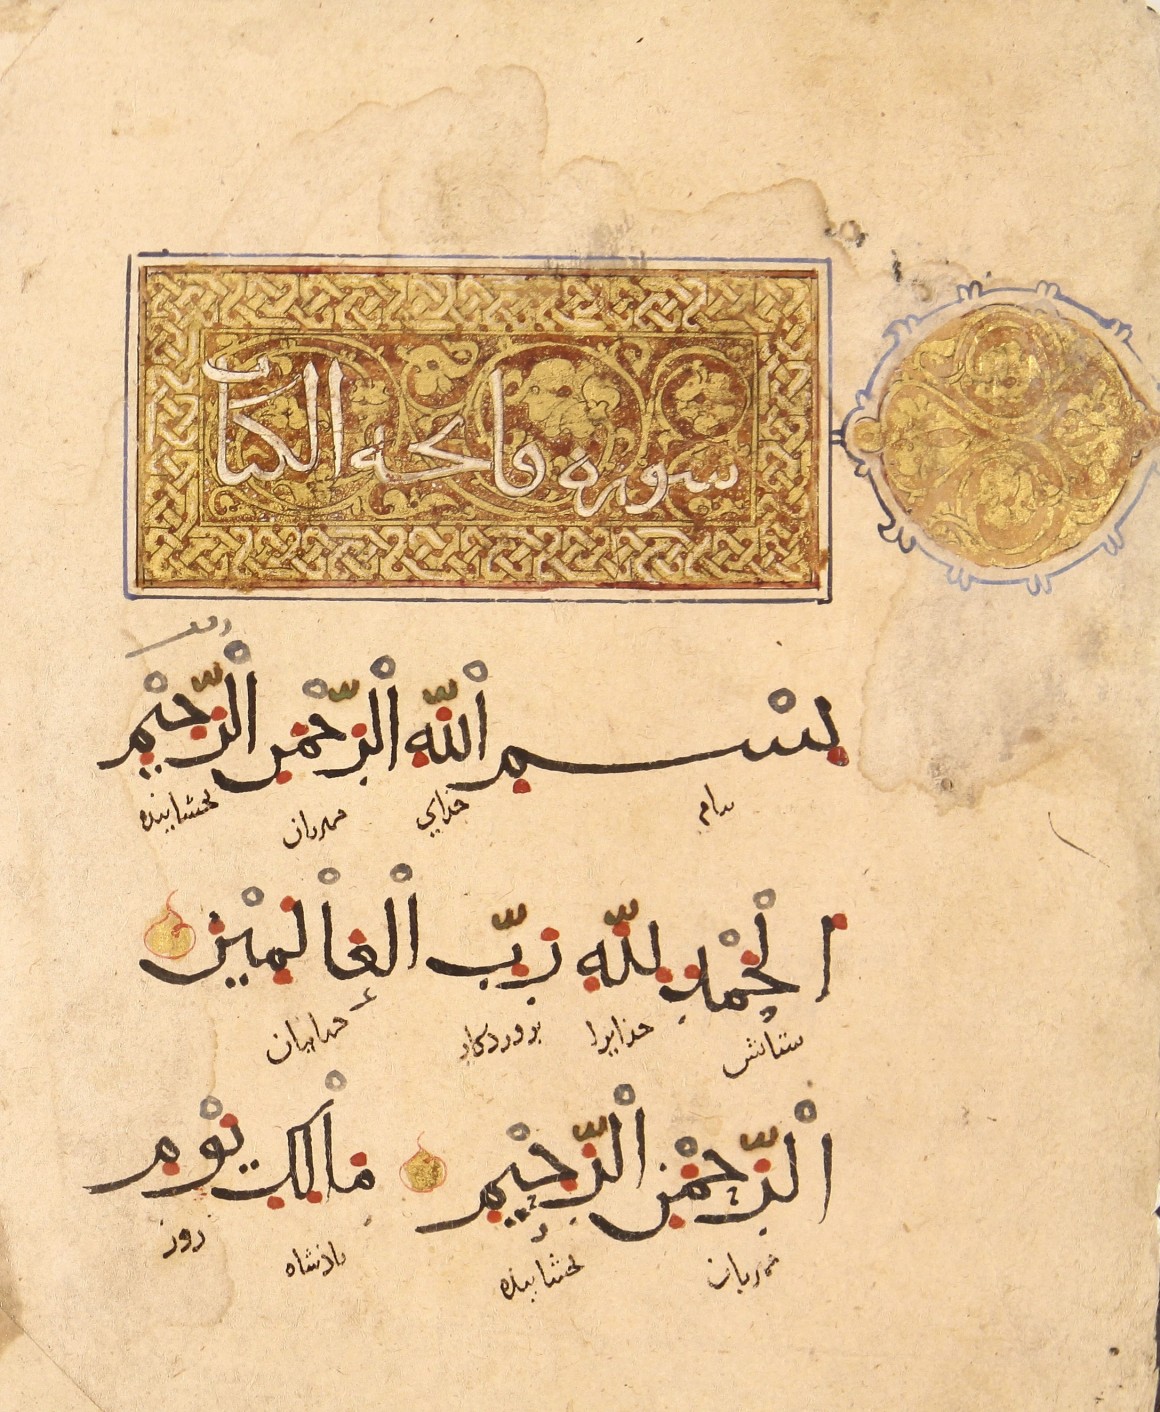 سورة فاتحة الكتاب
بِسْمِ اللّٰهِ الرَّحْمٰنِ الرَّحِيْمِ
بنام خذاي مهربان بخشاينده
اَلْحَمْدُ لِلّٰهِ رَبِّ الْعَالَمِيْنَ
ستايش خذايرا پروردكار جهانيان
الرَّحْمٰنِ الرَّحِيْمِ مَالِكِ يَوْمِ
مهربان بخشاينده پاذشاه روز